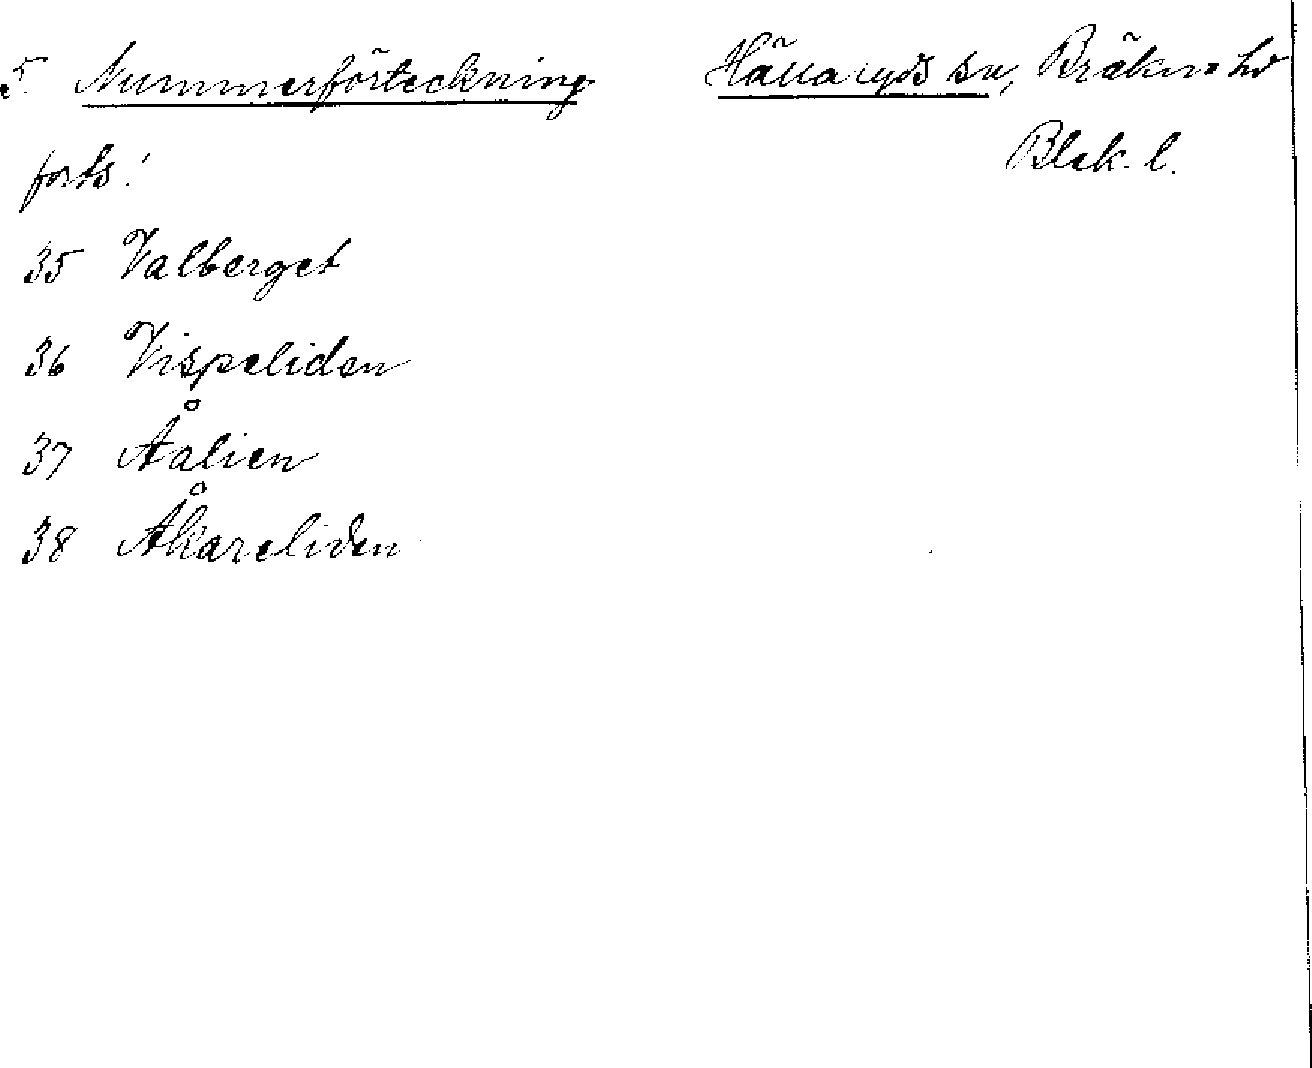 5. Nummerförteckning Hällaryds sn, Bräkne hd
forts. Blek. l.
35 Valberget
36 Vispeliden
37 Åalien
38 Åkareliden